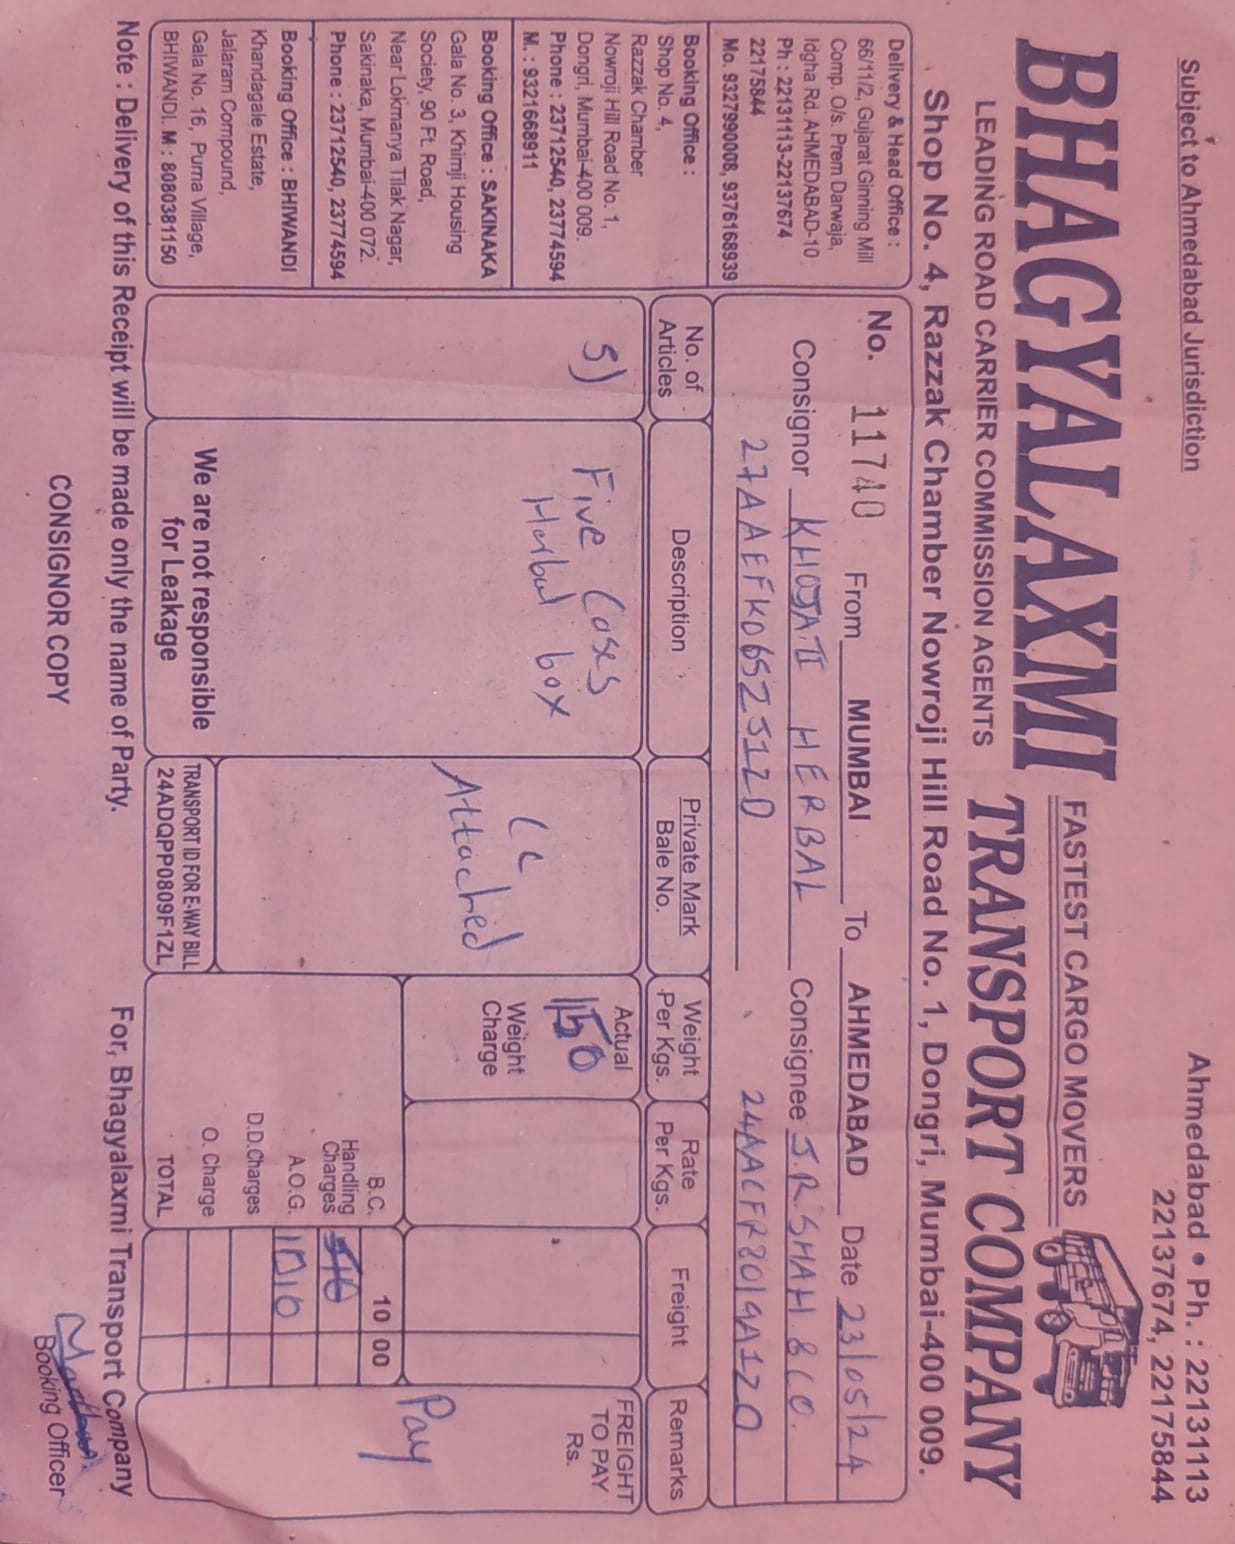 Subject to Ahmedabad Jurisdiction
Ahmedabad • Ph. : 22131113
22137674, 22175844
BHAGYALAXMI
FASTEST CARGO MOVERS
TRANSPORT COMPANY
LEADING ROAD CARRIER COMMISSION AGENTS
Shop No. 4, Razzak Chamber Nowroji Hill Road No. 1, Dongri, Mumbai-400 009.
Delivery & Head Office :
66/11/2, Gujarat Ginning Mill
Comp. O/s. Prem Darwaja,
Idgha Rd. AHMEDABAD-10
Ph : 22131113-22137674
22175844
Mo. 9327990008, 9376168939
Booking Office :
Shop No. 4,
Razzak Chamber
Nowroji Hill Road No. 1,
Dongri, Mumbai-400 009.
Phone : 23712540, 23774594
M. : 9321668911
Booking Office : SAKINAKA
Gala No. 3, Khimji Housing
Society, 90 Ft. Road,
Near Lokmanya Tilak Nagar,
Sakinaka, Mumbai-400 072.
Phone : 23712540, 23774594
Booking Office : BHIWANDI
Khandagale Estate,
Jalaram Compound,
Gala No. 16, Purna Village,
BHIWANDI. M : 8080381150
No. 11740 From MUMBAI To AHMEDABAD Date 23/05/24
Consignor KHOJATI HERBAL Consignee J.R. SHAH & CO.
27AAEFK0652J1ZD 24AACFR2019A1ZD
No. of Articles
Description
Private Mark Bale No.
Weight Per Kgs.
Rate Per Kgs.
Freight
Remarks
5)
Five Coses
Harbal box
CC
Attached
Actual
150
Weight Charge
FREIGHT
TO PAY
Rs.
Pay
B.C. 10 00
Handling Charges
A.O.G. 1010
D.D.Charges
O. Charge
TOTAL
We are not responsible
for Leakage
TRANSPORT ID FOR E-WAY BILL
24ADQPP0809F1ZL
Note : Delivery of this Receipt will be made only the name of Party.
For, Bhagyalaxmi Transport Company
CONSIGNOR COPY
Booking Officer